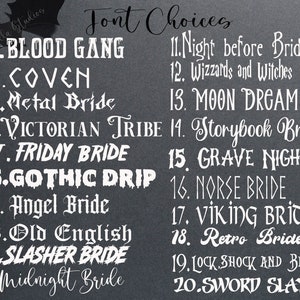 Font Choices
BLOOD GANG
COVEN
Metal Bride
VICTORIAN TRIBE
FRIDAY BRIDE
GOTHIC DRIP
Angel Bride
Old English
SLASHER BRIDE
Midnight Bride
11. Night before Brid
12. Wizzards and Witches
13. MOON DREAM
14. Storybook B
15. GRAVE NIGH
16. NORSE BRIDE
17. VIKING BRID
18. Retro Bride
19. LOCK,SHOCK AND B
20. SWORD SLA